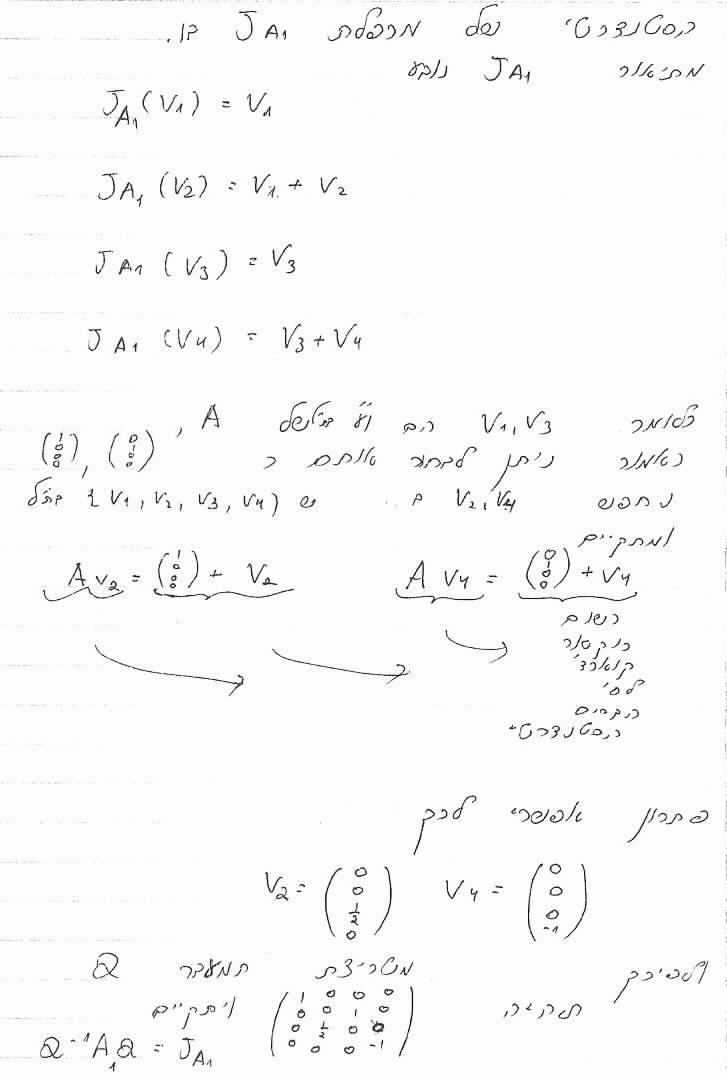 הסטנדרטי של מכפלת J_{A1} בו.
מתיאור J_{A1} נובע
J_{A_1}(V_1) = V_1
J_{A_1}(V_2) = V_1 + V_2
J_{A1}(V_3) = V_3
J_{A1}(V_4) = V_3 + V_4
כלומר V_1, V_3 הם ו"ע של A,
כאמור ניתן לבחור אותם כ (1 0 0 0), (0 1 0 0)
נחפש V_2, V_4 {V_1, V_2, V_3, V_4} בת"ל
ומתקיים
A V_2 = (1 0 0 0) + V_2   A V_4 = (0 1 0 0) + V_4
רשום
כוקטור
קוארד'
לפי
הבסיס
הסטנדרטי
פתרון אפשרי לכך
V_2 = (0 0 1/2 0)   V_4 = (0 0 0 -1)
ולפיכך מטריצת המעבר Q
תהיה (1 0 0 0; 0 0 1 0; 0 1/2 0 0; 0 0 0 -1) ויתקיים
Q^{-1} A_1 Q = J_{A1}